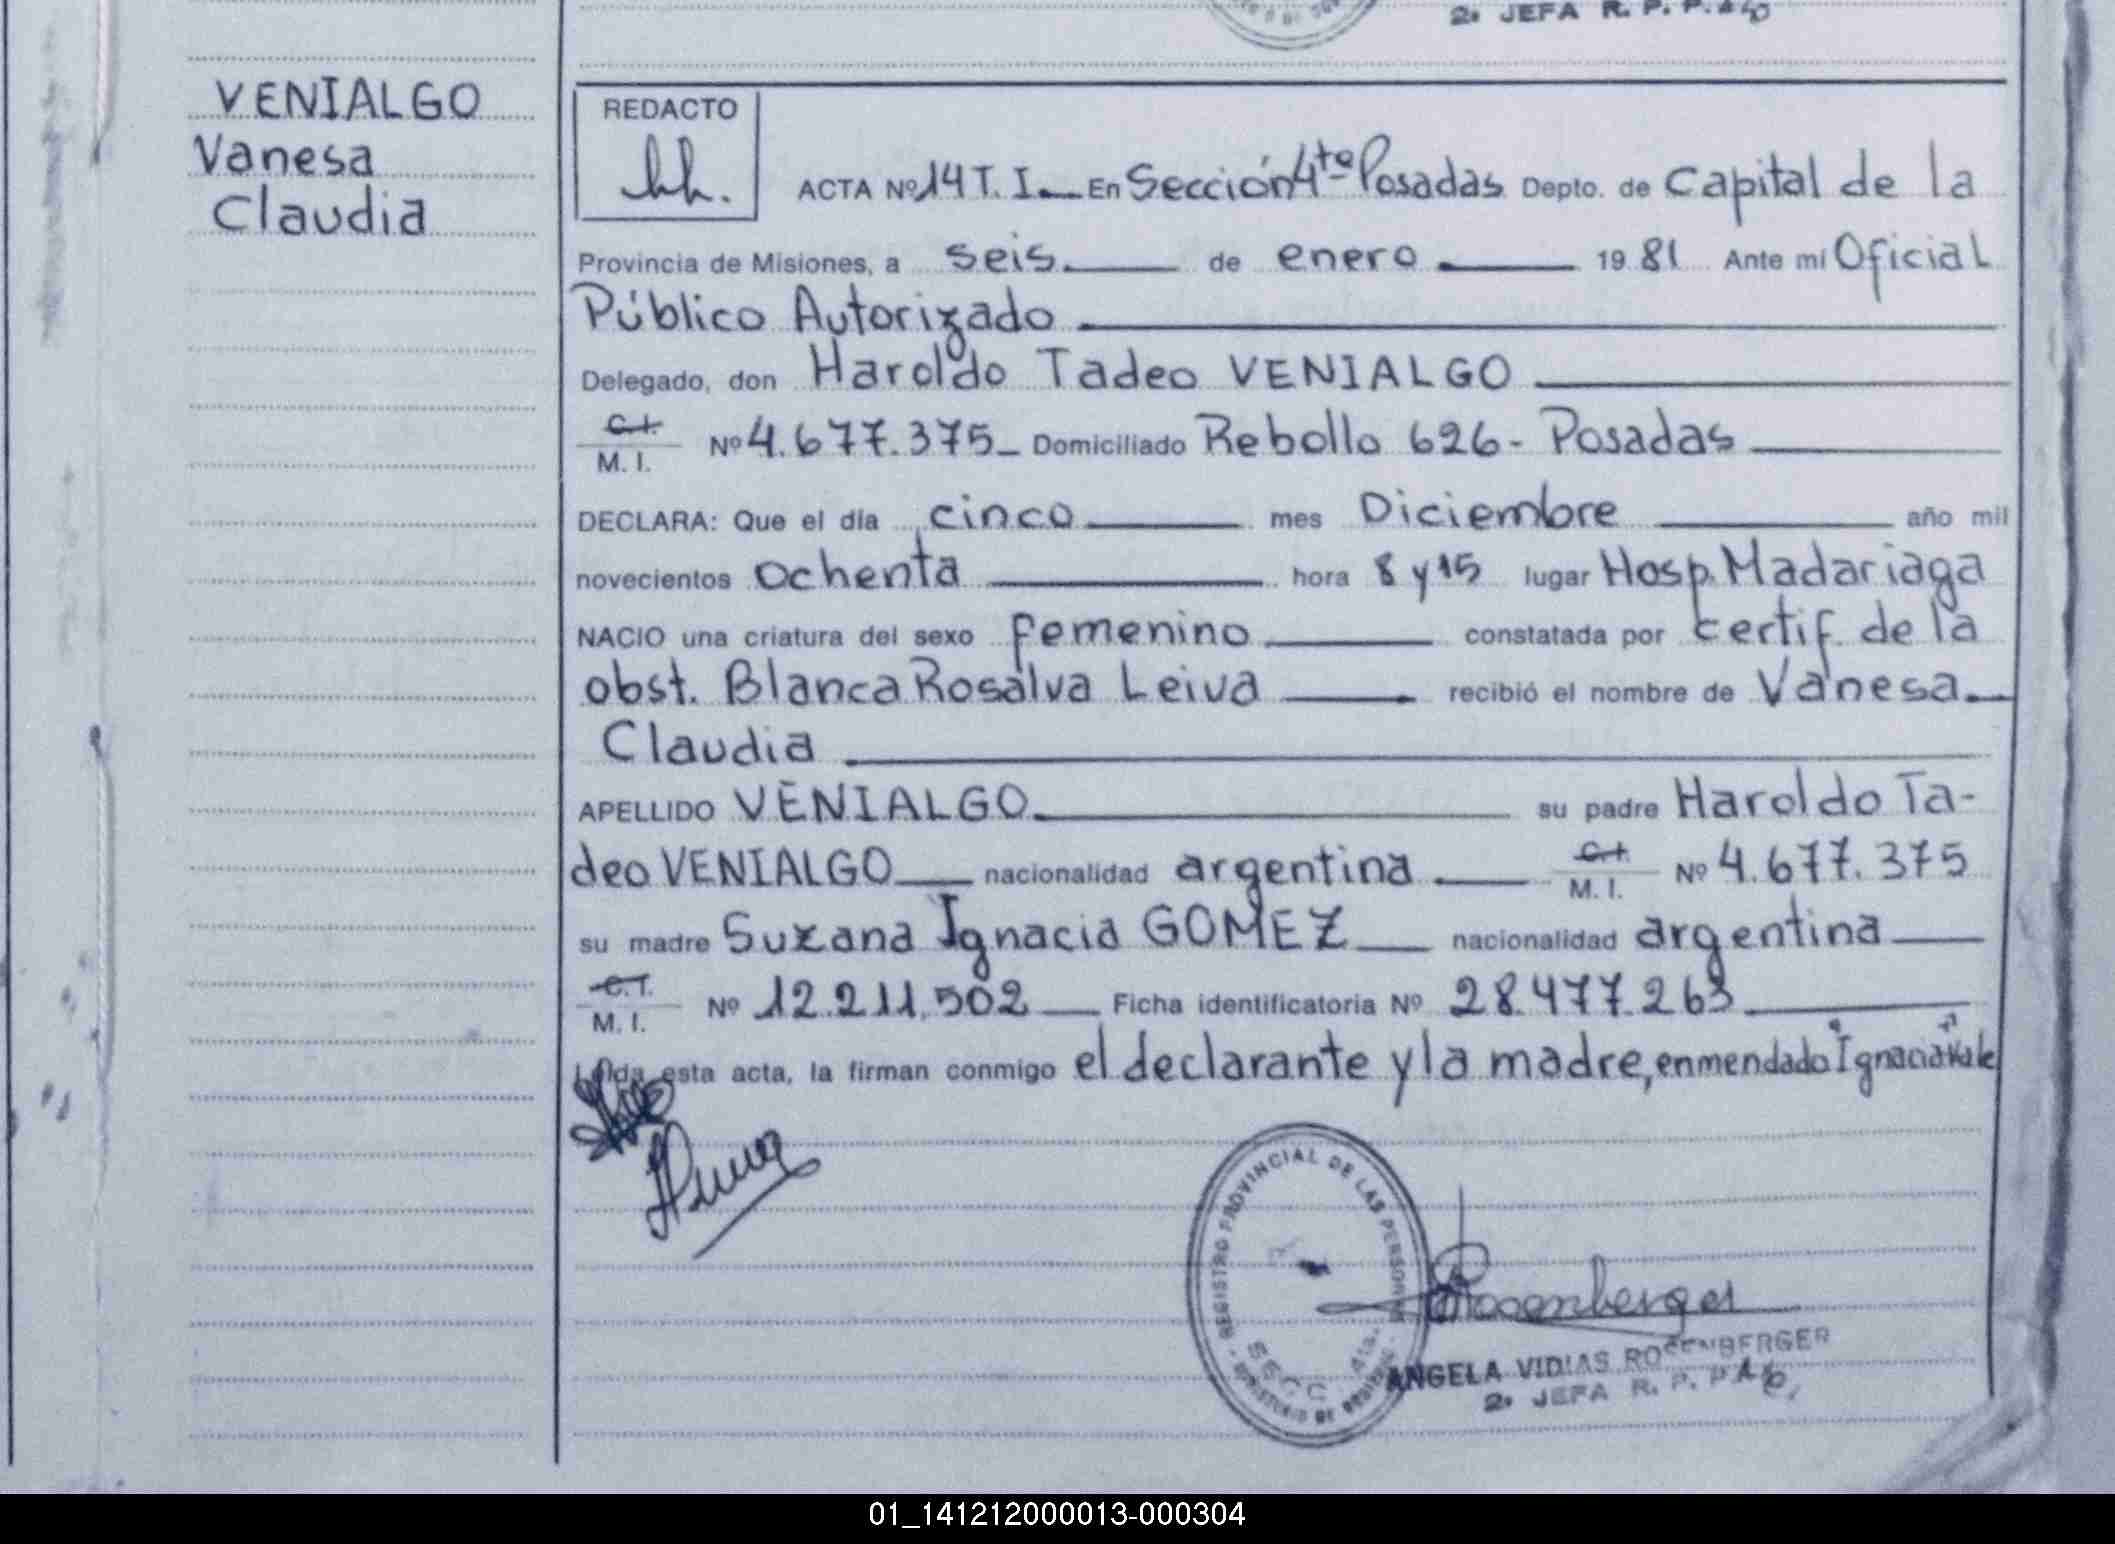 2º JEFA R. P. P.
VENIALGO
Vanesa
Claudia
REDACTO
ACTA Nº 14 T. I. En Sección 4tª Posadas Depto. de Capital de la
Provincia de Misiones, a seis de enero 1981 Ante mí Oficial
Público Autorizado
Delegado, don Haroldo Tadeo VENIALGO
C.I.
M. I. Nº 4.677.375 Domiciliado Rebollo 626 - Posadas
DECLARA: Que el día cinco mes Diciembre año mil
novecientos ochenta hora 8 y 15 lugar Hosp. Madariaga
NACIO una criatura del sexo femenino constatada por certif. de la
obst. Blanca Rosalva Leiva recibió el nombre de Vanesa
Claudia
APELLIDO VENIALGO su padre Haroldo Ta-
deo VENIALGO nacionalidad argentina C.I. M. I. Nº 4.677.375
su madre Suzana Ignacia GOMEZ nacionalidad argentina
C.I.
M. I. Nº 12.211.502 Ficha identificatoria Nº 28.477.263
Leída esta acta, la firman conmigo el declarante y la madre, enmendado "Ignacia" Vale
REGISTRO PROVINCIAL DE LAS PERSONAS
SECC. 4ta.
Rosenberger
ANGELA VIDIAS ROSENBERGER
2º JEFA R. P. P.
01_141212000013-000304